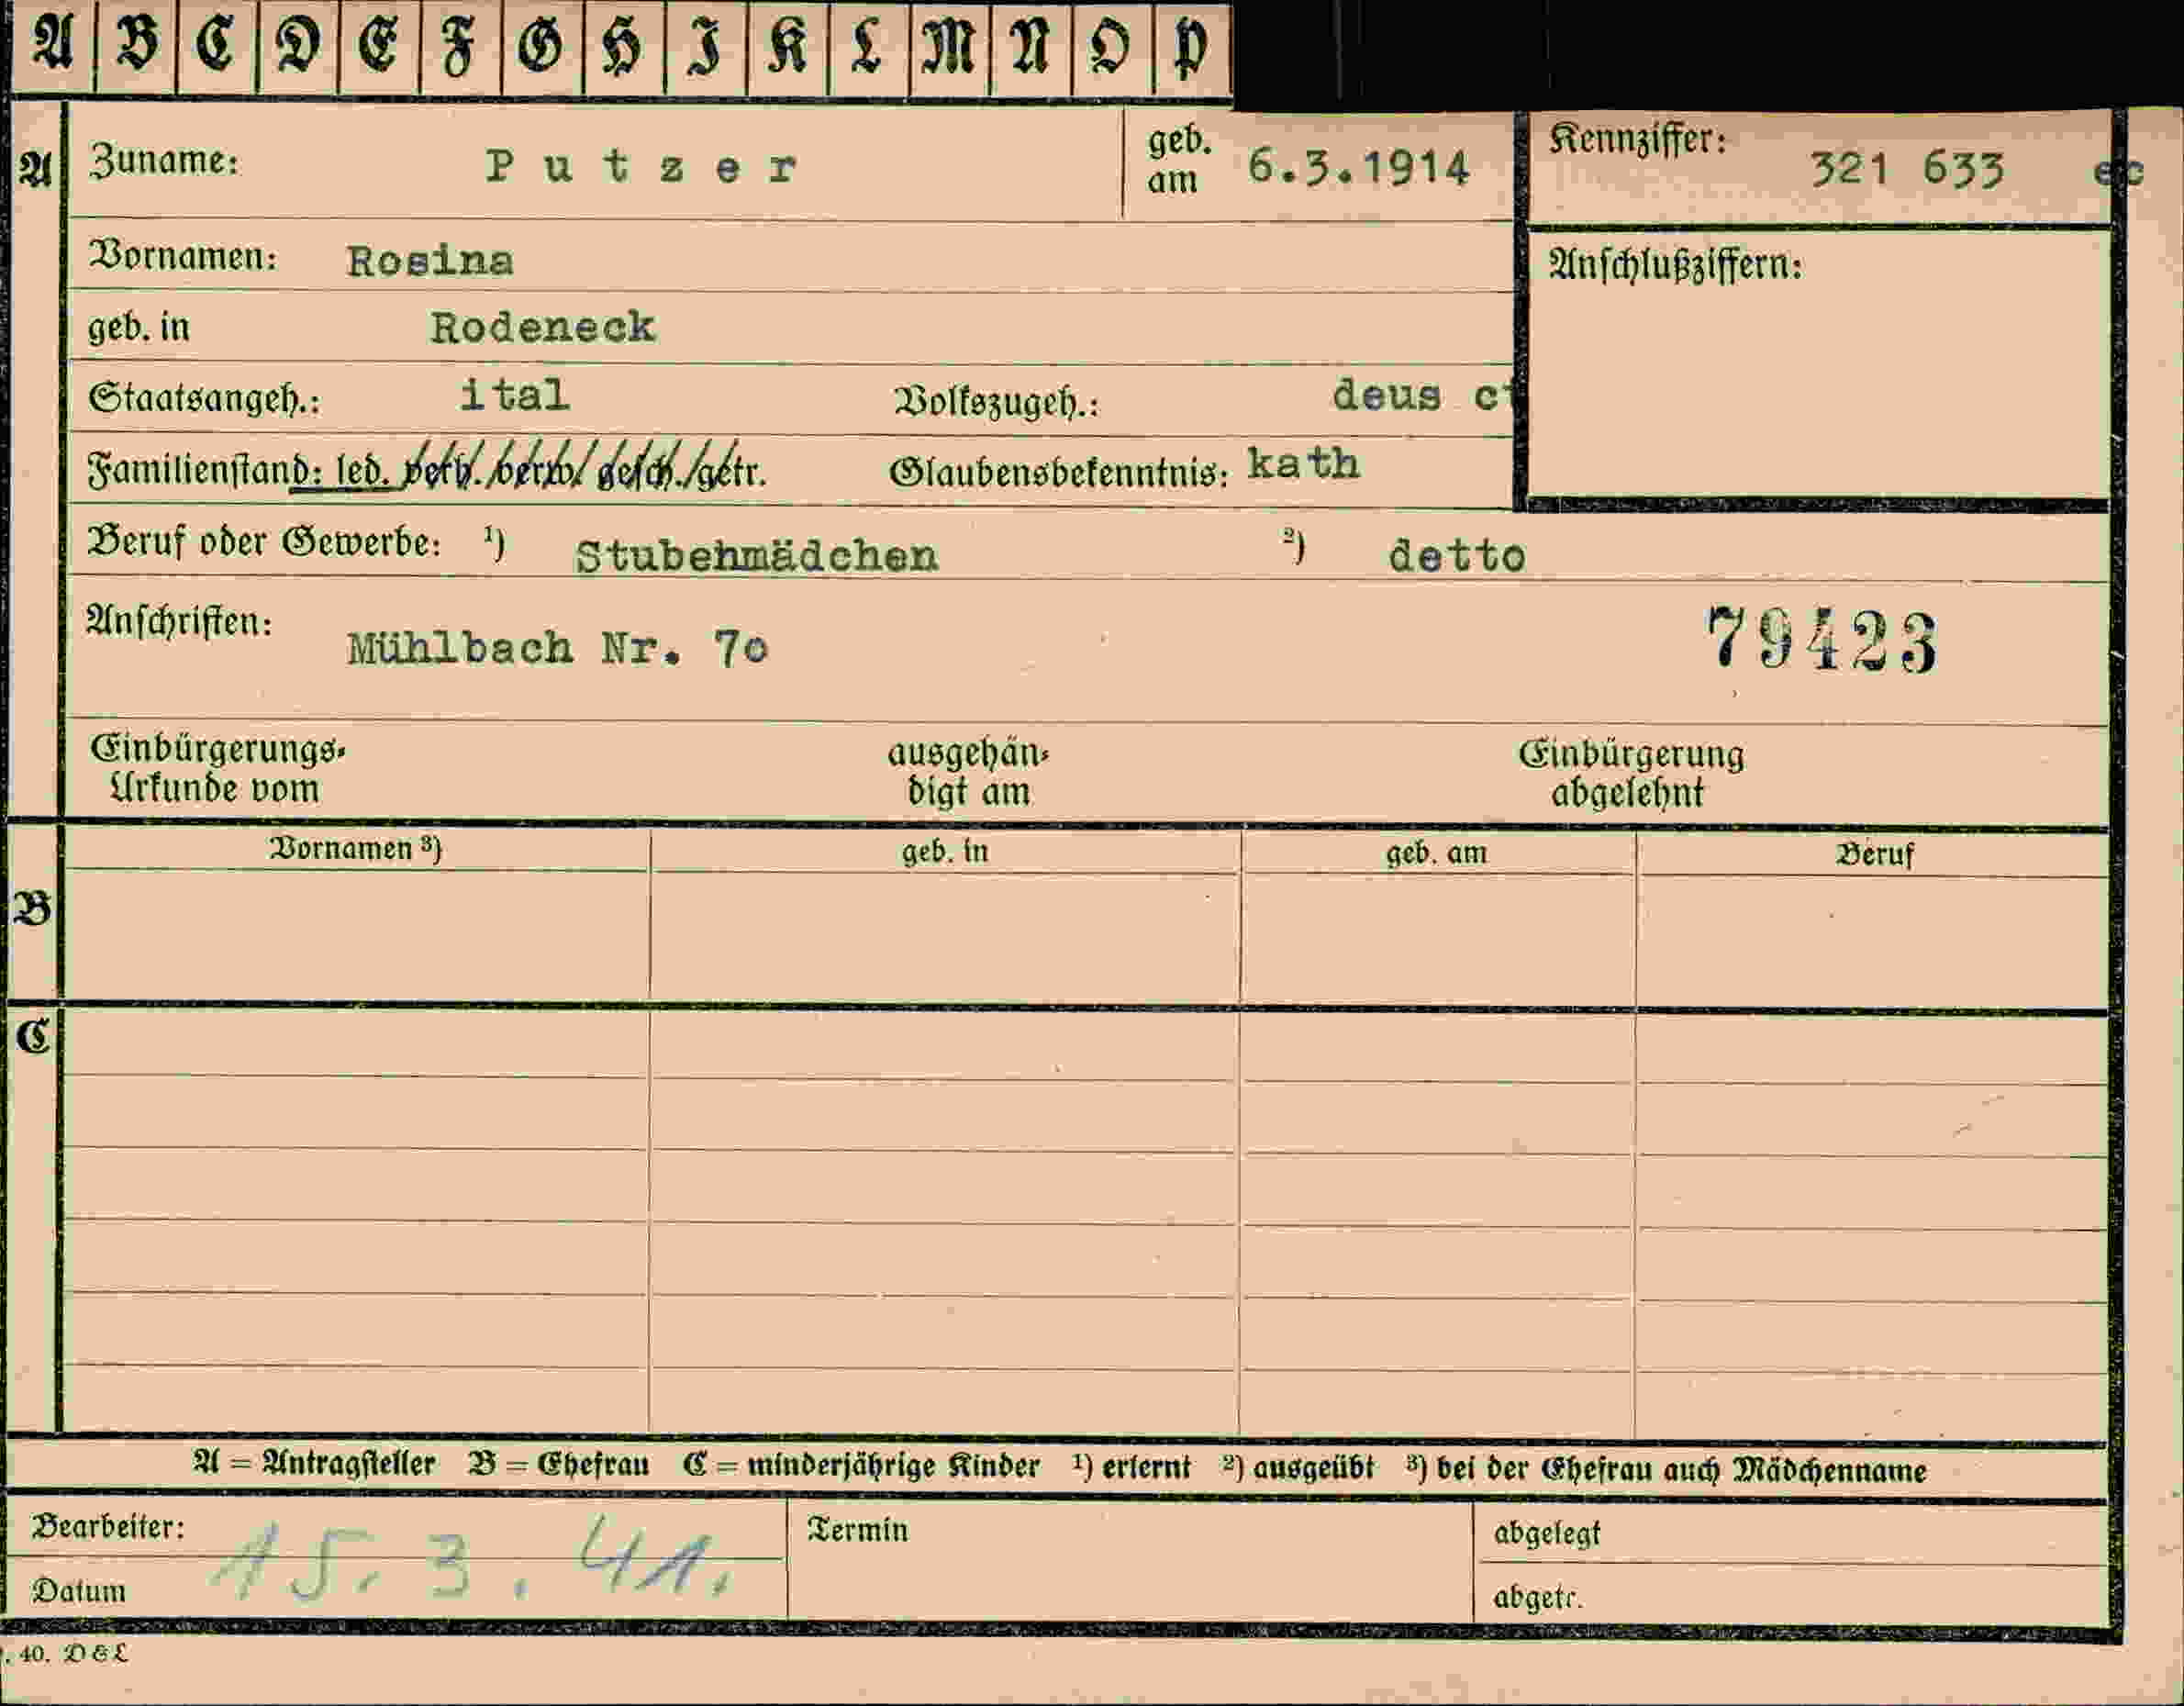 A B C D E F G H I K L M N O P
A Zuname: Putzer geb. am 6.3.1914 Kennziffer: 321 633 ec
Vornamen: Rosina Anschlußziffern:
geb. in Rodeneck
Staatsangeh.: ital Volkszugeh.: deus ct
Familienstand: led. verh./verw./gesch./getr. Glaubensbekenntnis: kath
Beruf oder Gewerbe: 1) Stubehmädchen 2) detto
Anschriften: Mühlbach Nr. 7o 79423
Einbürgerungs- ausgehän- Einbürgerung
Urkunde vom digt am abgelehnt
Vornamen 3) geb. in geb. am Beruf
B
C
A = Antragsteller B = Ehefrau C = minderjährige Kinder 1) erlernt 2) ausgeübt 3) bei der Ehefrau auch Mädchenname
Bearbeiter: Termin abgelegt
15. 3. 41.
Datum abgetr.
. 40. D & L